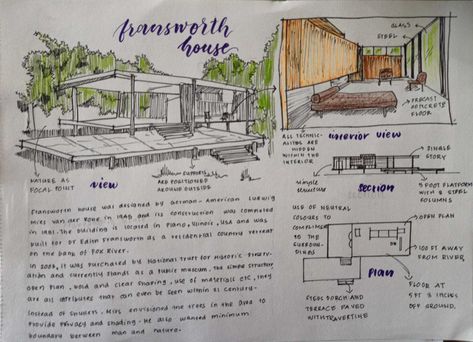 fransworth
house
GLASS
STEEL
PRECAST
CONCRETE
FLOOR
ALL TECHNIC-
ALITIES ARE
HIDDEN
WITHIN THE
INTERIOR
interior view
NATURE AS
FOCAL POINT
view
SUPPORTS
ARE POSITIONED
AROUND OUTSIDE
SINGLE
STORY
SIMPLE
STRUCTURE
section
5 FOOT PLATFORM
WITH 8 STEEL
COLUMNS
Fransworth House was designed by German-American Ludwig
Mies van der Rohe in 1945 and its construction was completed
in 1951. The building is located in Plano, Illinois, USA and was
built for Dr Edith Fransworth as a residential country retreat
on the bank of Fox River.
In 2003, it was purchased by National Trust for Historic Preserv-
ation and currently stands as a public museum. The simple structure
open plan, bold and clear shaping, use of materials etc, they
are all attributes that can even be seen within 21 century.
Instead of shutters, Mies envisioned the trees in the area to
provide privacy and shading. He also wanted minimum
boundary between man and nature.
USE OF NEUTRAL
COLOURS TO
COMPLIMENT
TO THE
SURROUN-
DINGS
OPEN PLAN
100 FT AWAY
FROM RIVER
Plan
FLOOR AT
5 FT 3 INCHES
OFF GROUND.
STEPS PORCH AND
TERRACE PAVED
WITH TRAVERTINE